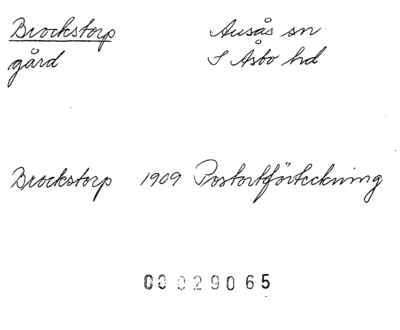 Brockstorp Ausås sn
gård S Åsbo hd
Brockstorp 1909 Postortförteckning
00029065